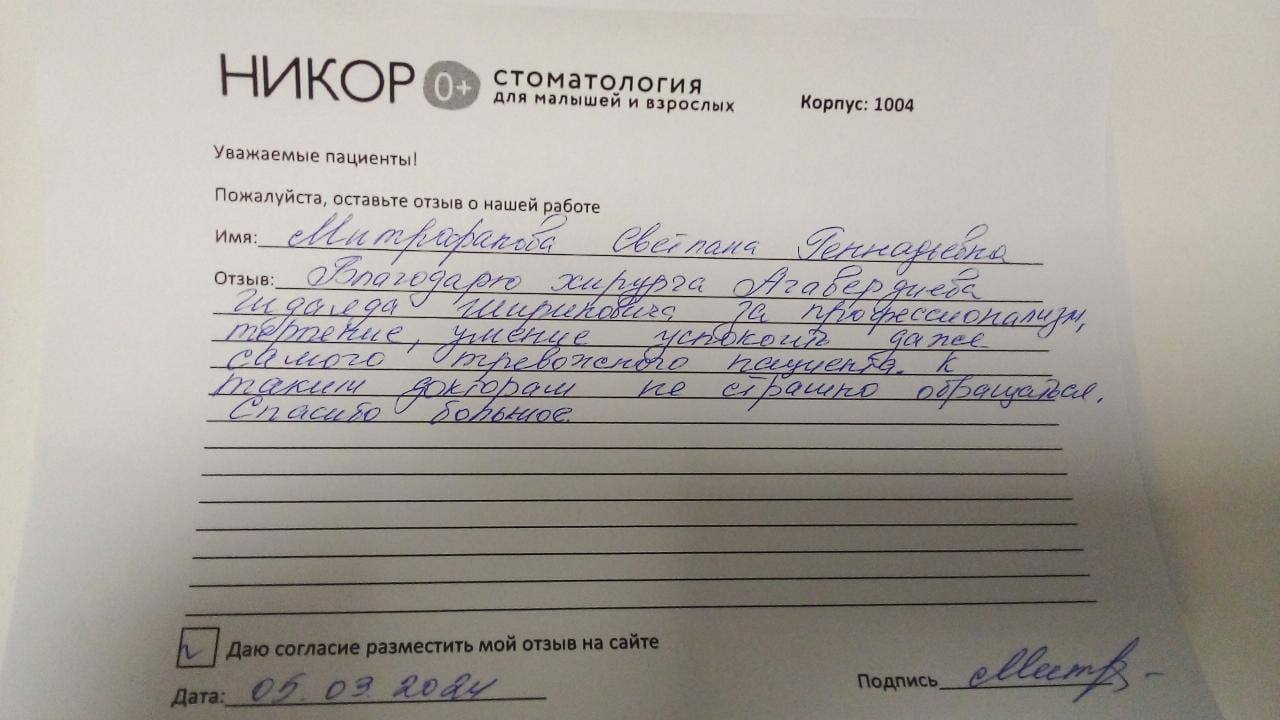 НИКОР 0+ стоматология
для малышей и взрослых
Корпус: 1004
Уважаемые пациенты!
Пожалуйста, оставьте отзыв о нашей работе
Имя: Митрафанова Светлана Геннадьевна
Отзыв: Благодарю хирурга Агавердиева
Шириновича за профессионализм,
терпение, умение успокоить даже
самого тревожного пациента. К
таким докторам не страшно обращаться.
Спасибо большое.
Даю согласие разместить мой отзыв на сайте
Дата: 05.03.2024
Подпись